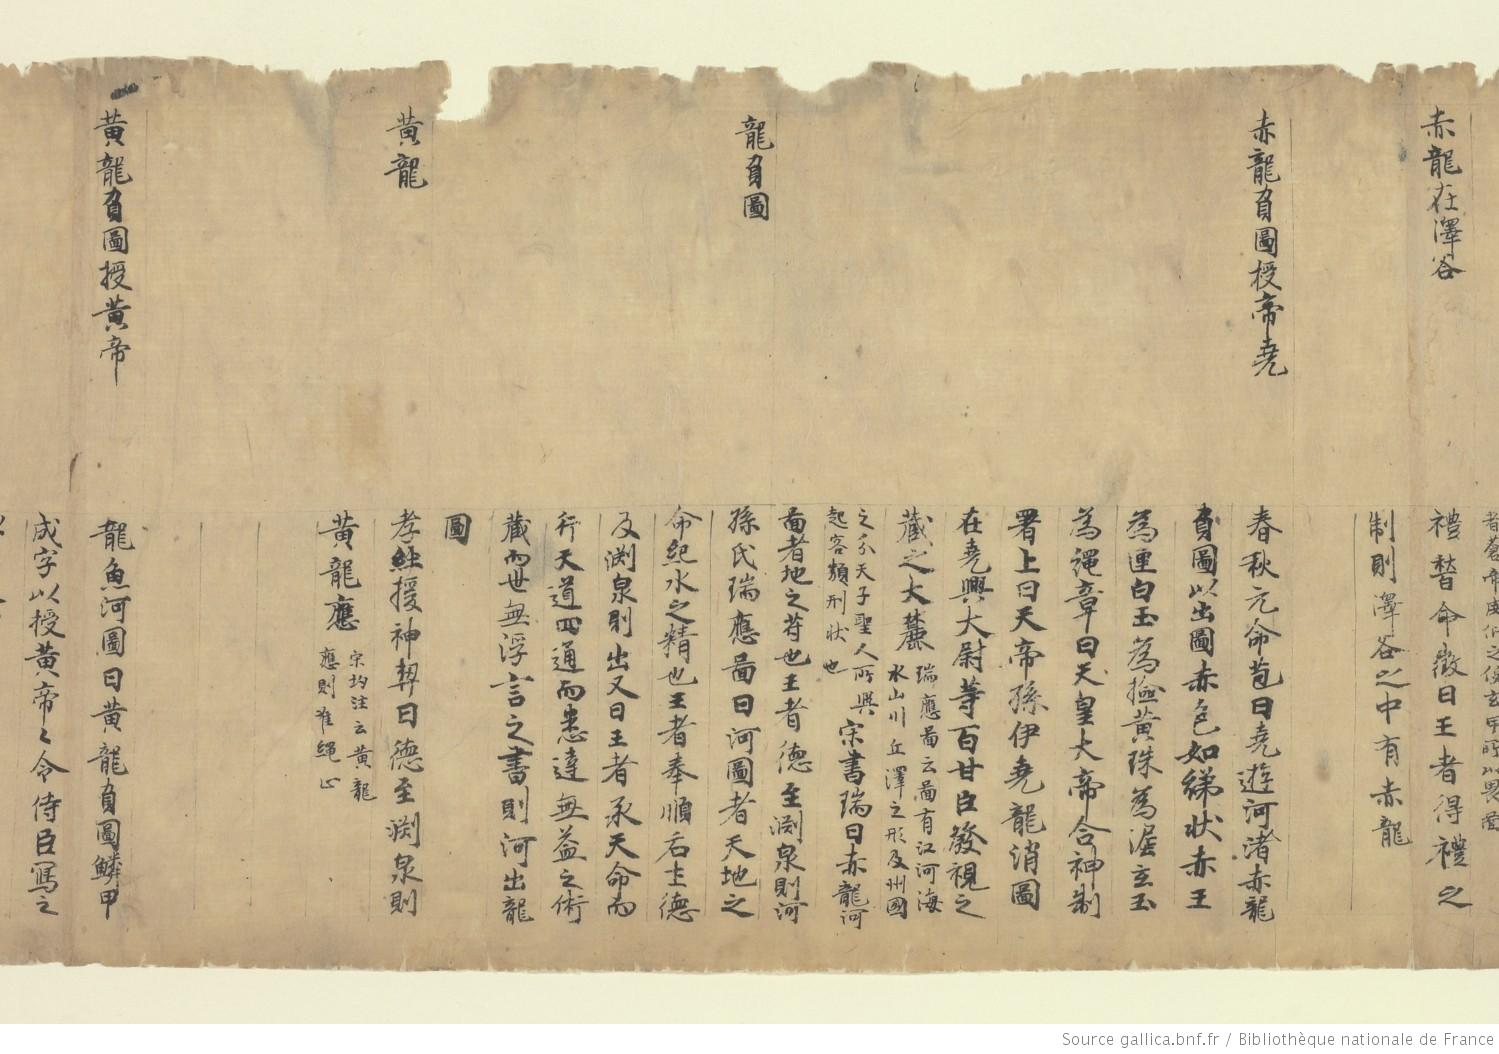 赤龍在澤谷
禮替命徵曰王者得禮之
制則澤谷之中有赤龍
赤龍負圖授帝堯
春秋元命苞曰堯遊河渚赤龍
負圖以出圖赤色如綈狀赤玉
為匣白玉為撿黃珠為渥玄玉
為繩章曰天皇大帝合神制
署上曰天帝孫伊堯龍消圖
在堯興大尉等百廿臣發視之
藏之大麓
瑞應啚云啚有江河海
水山川丘澤之形及州國
之分天子聖人所興
起容類刑狀也
宋書瑞曰赤龍河
啚者地之苻也王者德至淵泉則河
龍負圖
孫氏瑞應啚曰河圖者天地之
命紀水之精也王者奉順后土德
及淵泉則出又曰王者承天命而
行天道四通而悉達無益之術
藏而世無浮言之書則河出龍
圖
黃龍
孝經援神契曰德至淵泉則
黃龍應
宋均注云黃龍
應則准繩正
黃龍負圖授黃帝
龍魚河圖曰黃龍負圖鱗甲
成字以授黃帝〻令侍臣寫之
Source gallica.bnf.fr / Bibliothèque nationale de France